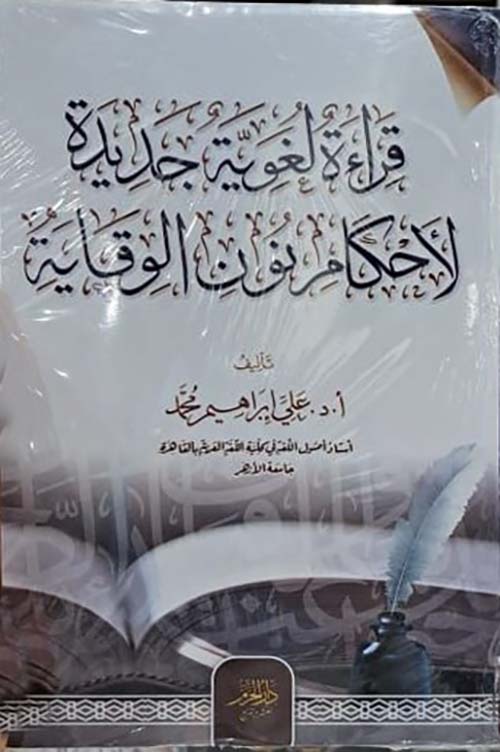 قِرَاءَةٌ لُغَوِيَّةٌ جَدِيدَةٌ
لِأَحْكَامِ نُونِ الوِقَايَةِ
تأليف
أ.د. علي إبراهيم محمد
أستاذ أصول اللغة في كلية اللغة العربية بالقاهرة
جامعة الأزهر
دار الحرم